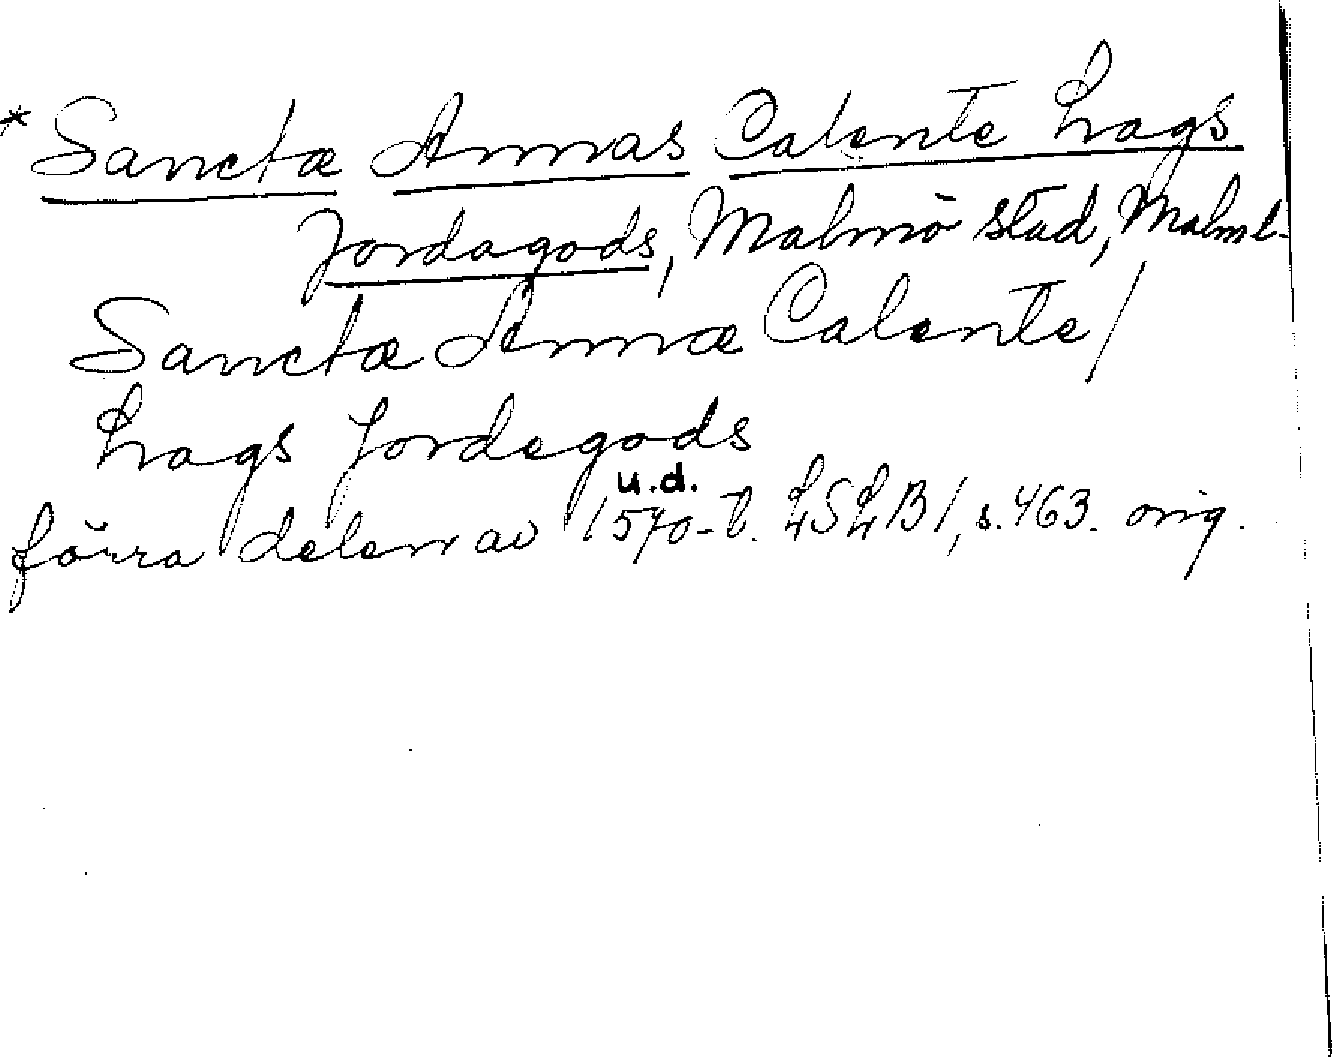 * Sanctæ Annas Calente Lags
Jordagods, Malmö stad, Malml.
Sanctæ Annæ Calente/
Lags Jordegods
u.d.
förra delen av 1570-t. LSLB1, s. 463. orig.